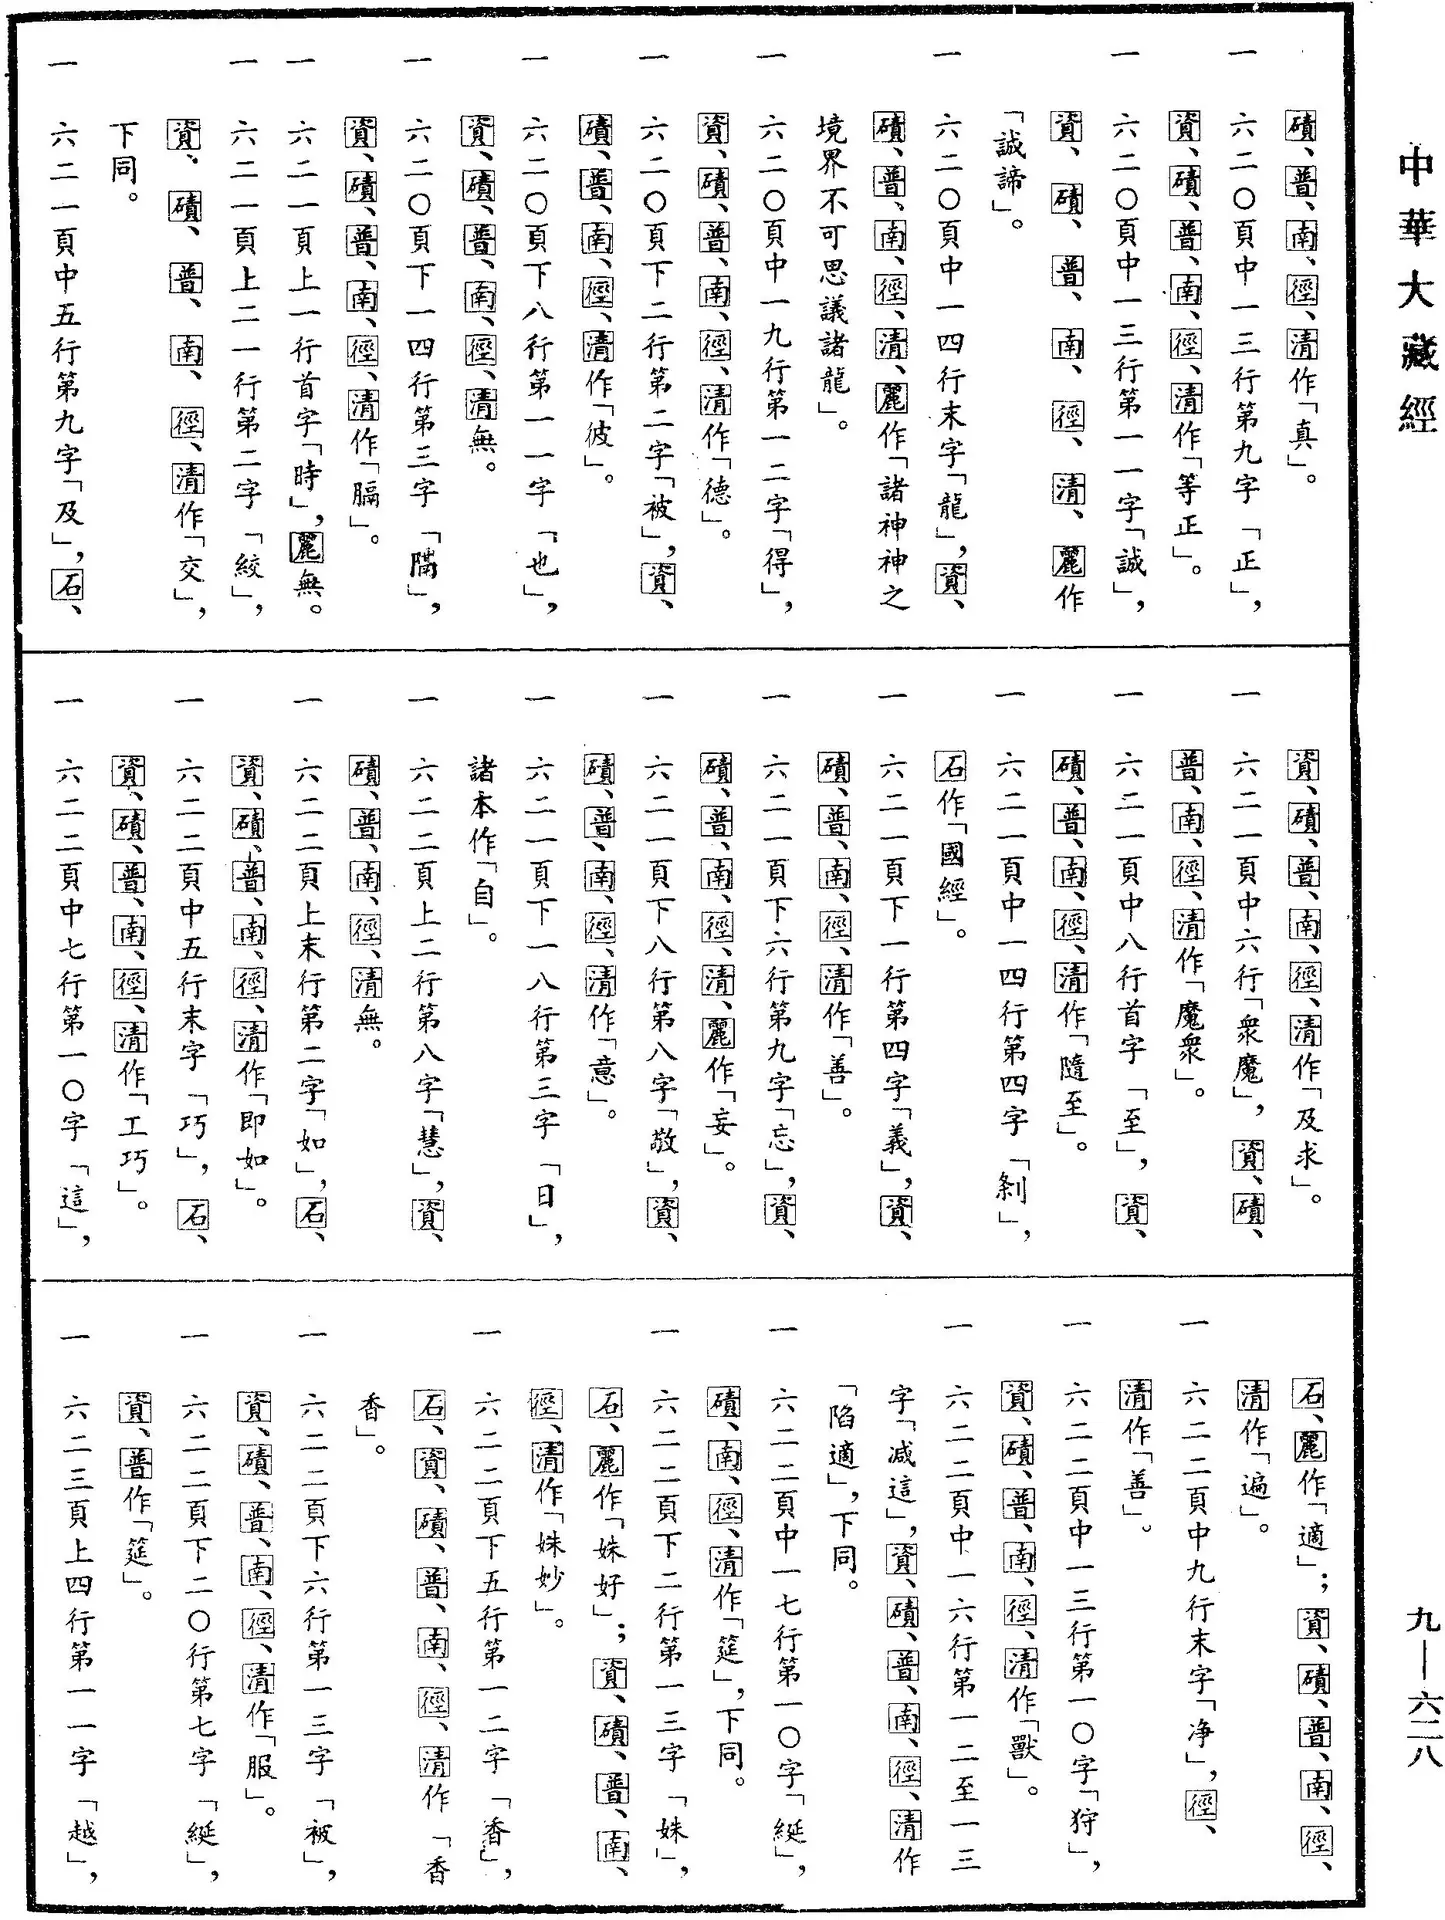 中華大藏經
磧、普、南、徑、清作「真」。
一 六二〇頁中一三行第九字「正」，
資、磧、普、南、徑、清作「等正」。
一 六二〇頁中一三行第一一字「誠」，
資、磧、普、南、徑、清、麗作
「誠諦」。
一 六二〇頁中一四行末字「龍」，資、
磧、普、南、徑、清、麗作「諸神神之
境界不可思議諸龍」。
一 六二〇頁中一九行第一二字「得」，
資、磧、普、南、徑、清作「德」。
一 六二〇頁下二行第二字「被」，資、
磧、普、南、徑、清作「彼」。
一 六二〇頁下八行第一一字「也」，
資、磧、普、南、徑、清無。
一 六二〇頁下一四行第三字「隔」，
資、磧、普、南、徑、清作「膈」。
一 六二一頁上一行首字「時」，麗無。
一 六二一頁上二一行第二字「絞」，
資、磧、普、南、徑、清作「交」，
下同。
一 六二一頁中五行第九字「及」，石、
資、磧、普、南、徑、清作「及求」。
一 六二一頁中六行「衆魔」，資、磧、
普、南、徑、清作「魔衆」。
一 六二一頁中八行首字「至」，資、
磧、普、南、徑、清作「隨至」。
一 六二一頁中一四行第四字「剎」，
石作「國經」。
一 六二一頁下一行第四字「義」，資、
磧、普、南、徑、清作「善」。
一 六二一頁下六行第九字「忘」，資、
磧、普、南、徑、清、麗作「妄」。
一 六二一頁下八行第八字「敬」，資、
磧、普、南、徑、清作「意」。
一 六二一頁下一八行第三字「日」，
諸本作「自」。
一 六二二頁上二行第八字「慧」，資、
磧、普、南、徑、清無。
一 六二二頁上末行第二字「如」，石、
資、磧、普、南、徑、清作「即如」。
一 六二二頁中五行末字「巧」，石、
資、磧、普、南、徑、清作「工巧」。
一 六二二頁中七行第一〇字「這」，
石、麗作「適」；資、磧、普、南、徑、
清作「遍」。
一 六二二頁中九行末字「净」，徑、
清作「善」。
一 六二二頁中一三行第一〇字「狩」，
資、磧、普、南、徑、清作「獸」。
一 六二二頁中一六行第一二至一三
字「减這」，資、磧、普、南、徑、清作
「陷適」，下同。
一 六二二頁中一七行第一〇字「綖」，
磧、南、徑、清作「筵」，下同。
一 六二二頁下二行第一三字「姝」，
石、麗作「姝好」；資、磧、普、南、
徑、清作「姝妙」。
一 六二二頁下五行第一二字「香」，
石、資、磧、普、南、徑、清作「香
香」。
一 六二二頁下六行第一三字「被」，
資、磧、普、南、徑、清作「服」。
一 六二二頁下二〇行第七字「綖」，
資、普作「筵」。
一 六二三頁上四行第一一字「越」，
九—六二八